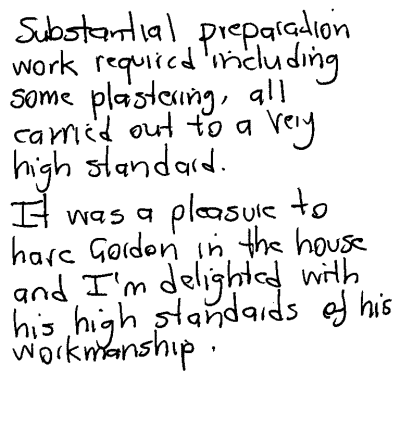 Substantial preparation
work required including
some plastering, all
carried out to a very
high standard.
It was a pleasure to
have Gordon in the house
and I'm delighted with
his high standards of his
workmanship.